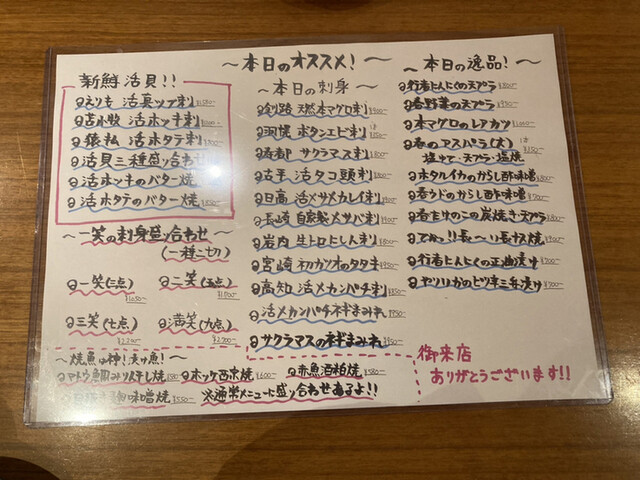 ～本日のオススメ!～
新鮮 活貝!!
えりも 活真ツブ刺
苫小牧 活ホッキ刺
猿払 活ホタテ刺
活貝三種盛り合わせ
活ホッキのバター焼
活ホタテのバター焼
～一笑の刺身盛り合わせ～
(一種二切)
一笑(三点)
二笑(五点)
三笑(七点)
満笑(九点)
～焼魚の神!漬け魚!～
アトウ鯛みりん干し焼
ホッケ西京焼 ¥600-
赤魚酒粕焼 ¥580-
味噌焼 ¥550-
※通常メニューに盛り合わせあるよ!!
～本日の刺身～
釧路 天然本マグロ刺 ¥900-
羽幌 ボタンエビ刺
寿都 サクラマス刺 ¥800-
岩手 活タコ頭刺 ¥800-
日高 活〆サメカレイ刺
長崎 自家製〆サバ刺
岩内 生トロにしん刺
宮崎 初ガツオのタタキ
高知 活〆カンパチ刺
活〆カンパチネギまみれ ¥950-
サクラマスのネギまみれ ¥950-
～本日の逸品!～
行者にんにくの天プラ ¥800-
春野菜の天プラ
本マグロのレアカツ
春のアスパラ(大)
塩ゆで・天プラ・塩焼
ホタルイカのからし酢味噌
春うどのからし酢味噌
春たけのこ炭焼き・天プラ
でかっ!!長～い長ナス焼
行者にんにくの正油漬け
ヤリイカのピリ辛三升漬け
御来店
ありがとうございます!!